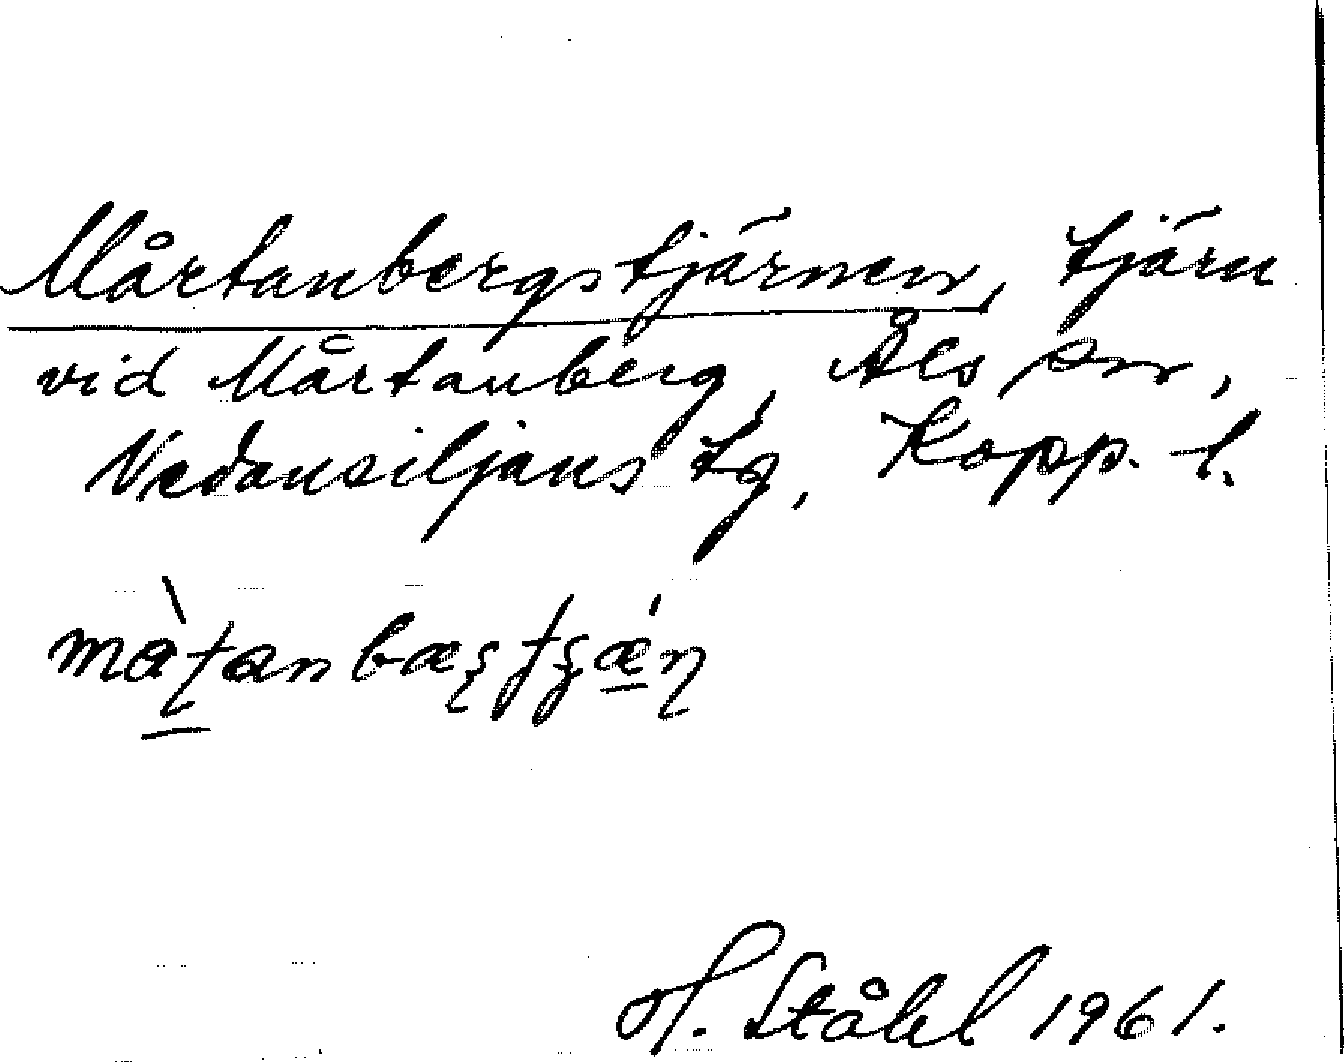 Mårtanbergstjärnen, tjärn
vid Mårtanberg, Åls sn,
Nedansiljans tg, Kopp. l.
H. Ståhl 1961.